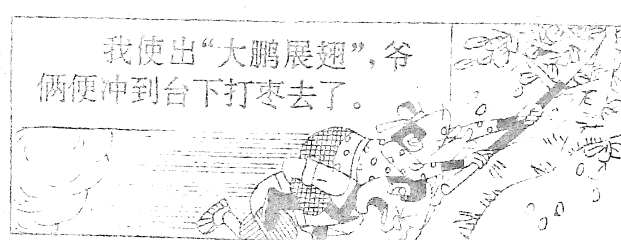 我使出“大鹏展翅”，爷
俩便冲到台下打枣去了。